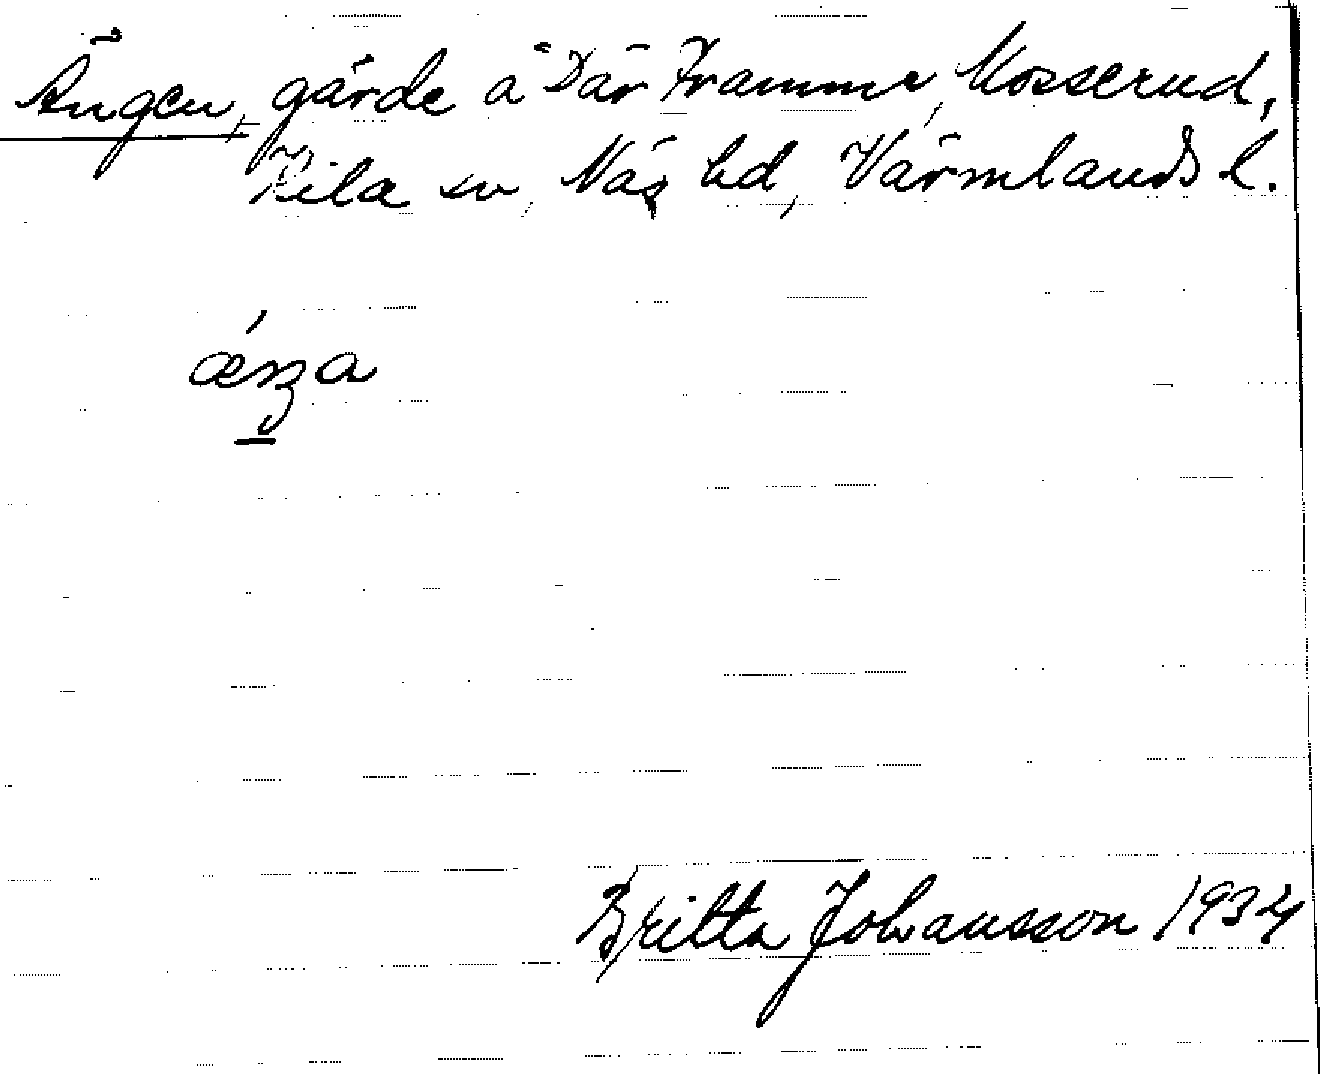 Ängen, gärde å Där Framme, Mosserud,
Kila sn, Näs hd, Värmlands l.
æ´ŋa
Britta Johansson 1934